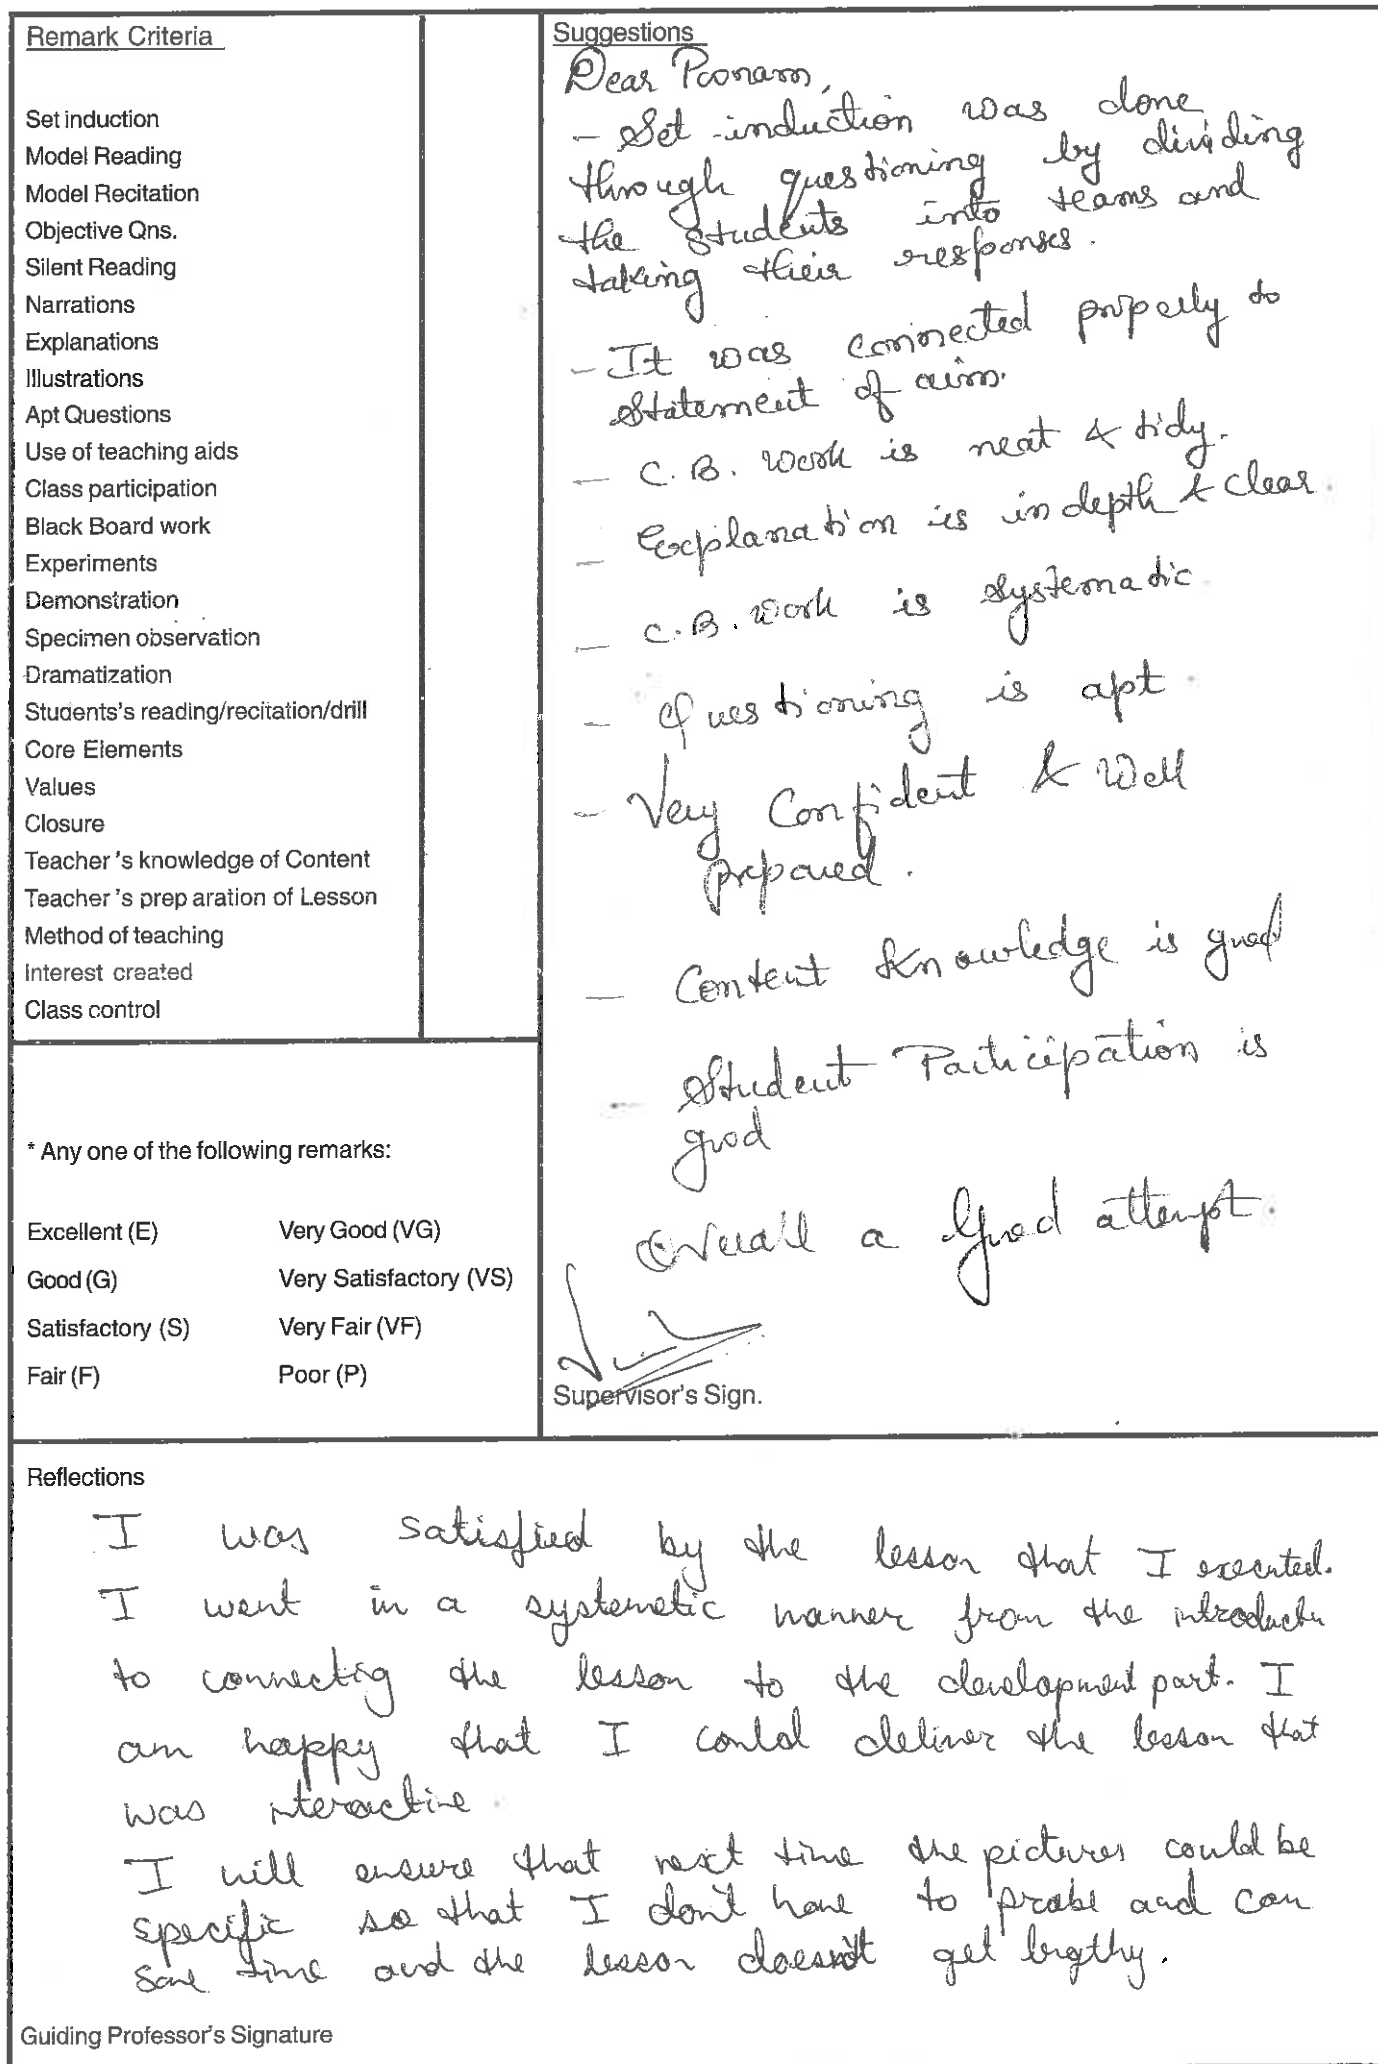 Remark Criteria
Set induction
Model Reading
Model Recitation
Objective Qns.
Silent Reading
Narrations
Explanations
Illustrations
Apt Questions
Use of teaching aids
Class participation
Black Board work
Experiments
Demonstration
Specimen observation
Dramatization
Students's reading/recitation/drill
Core Elements
Values
Closure
Teacher 's knowledge of Content
Teacher 's prep aration of Lesson
Method of teaching
Interest created
Class control
* Any one of the following remarks:
Excellent (E) Very Good (VG)
Good (G) Very Satisfactory (VS)
Satisfactory (S) Very Fair (VF)
Fair (F) Poor (P)
Suggestions
Dear Poonam,
- Set induction was done
through questioning by dividing
the students into teams and
taking their responses.
- It was connected properly to
Statement of aim.
- C.B. work is neat & tidy.
- Explanation is in depth & clear.
- C.B. work is systematic
- Questioning is apt
- Very Confident & Well
prepared.
- Content knowledge is good
- Student Participation is
good
Overall a Good attempt.
Supervisor's Sign.
Reflections
I was satisfied by the lesson that I executed.
I went in a systemetic manner from the introductn
to connectig the lesson to the development part. I
am happy that I could deliver the lesson that
was interactive.
I will ensure that next time the pictures could be
specific so that I don't have to probe and can
save time and the lesson doesn't get lengthy.
Guiding Professor's Signature